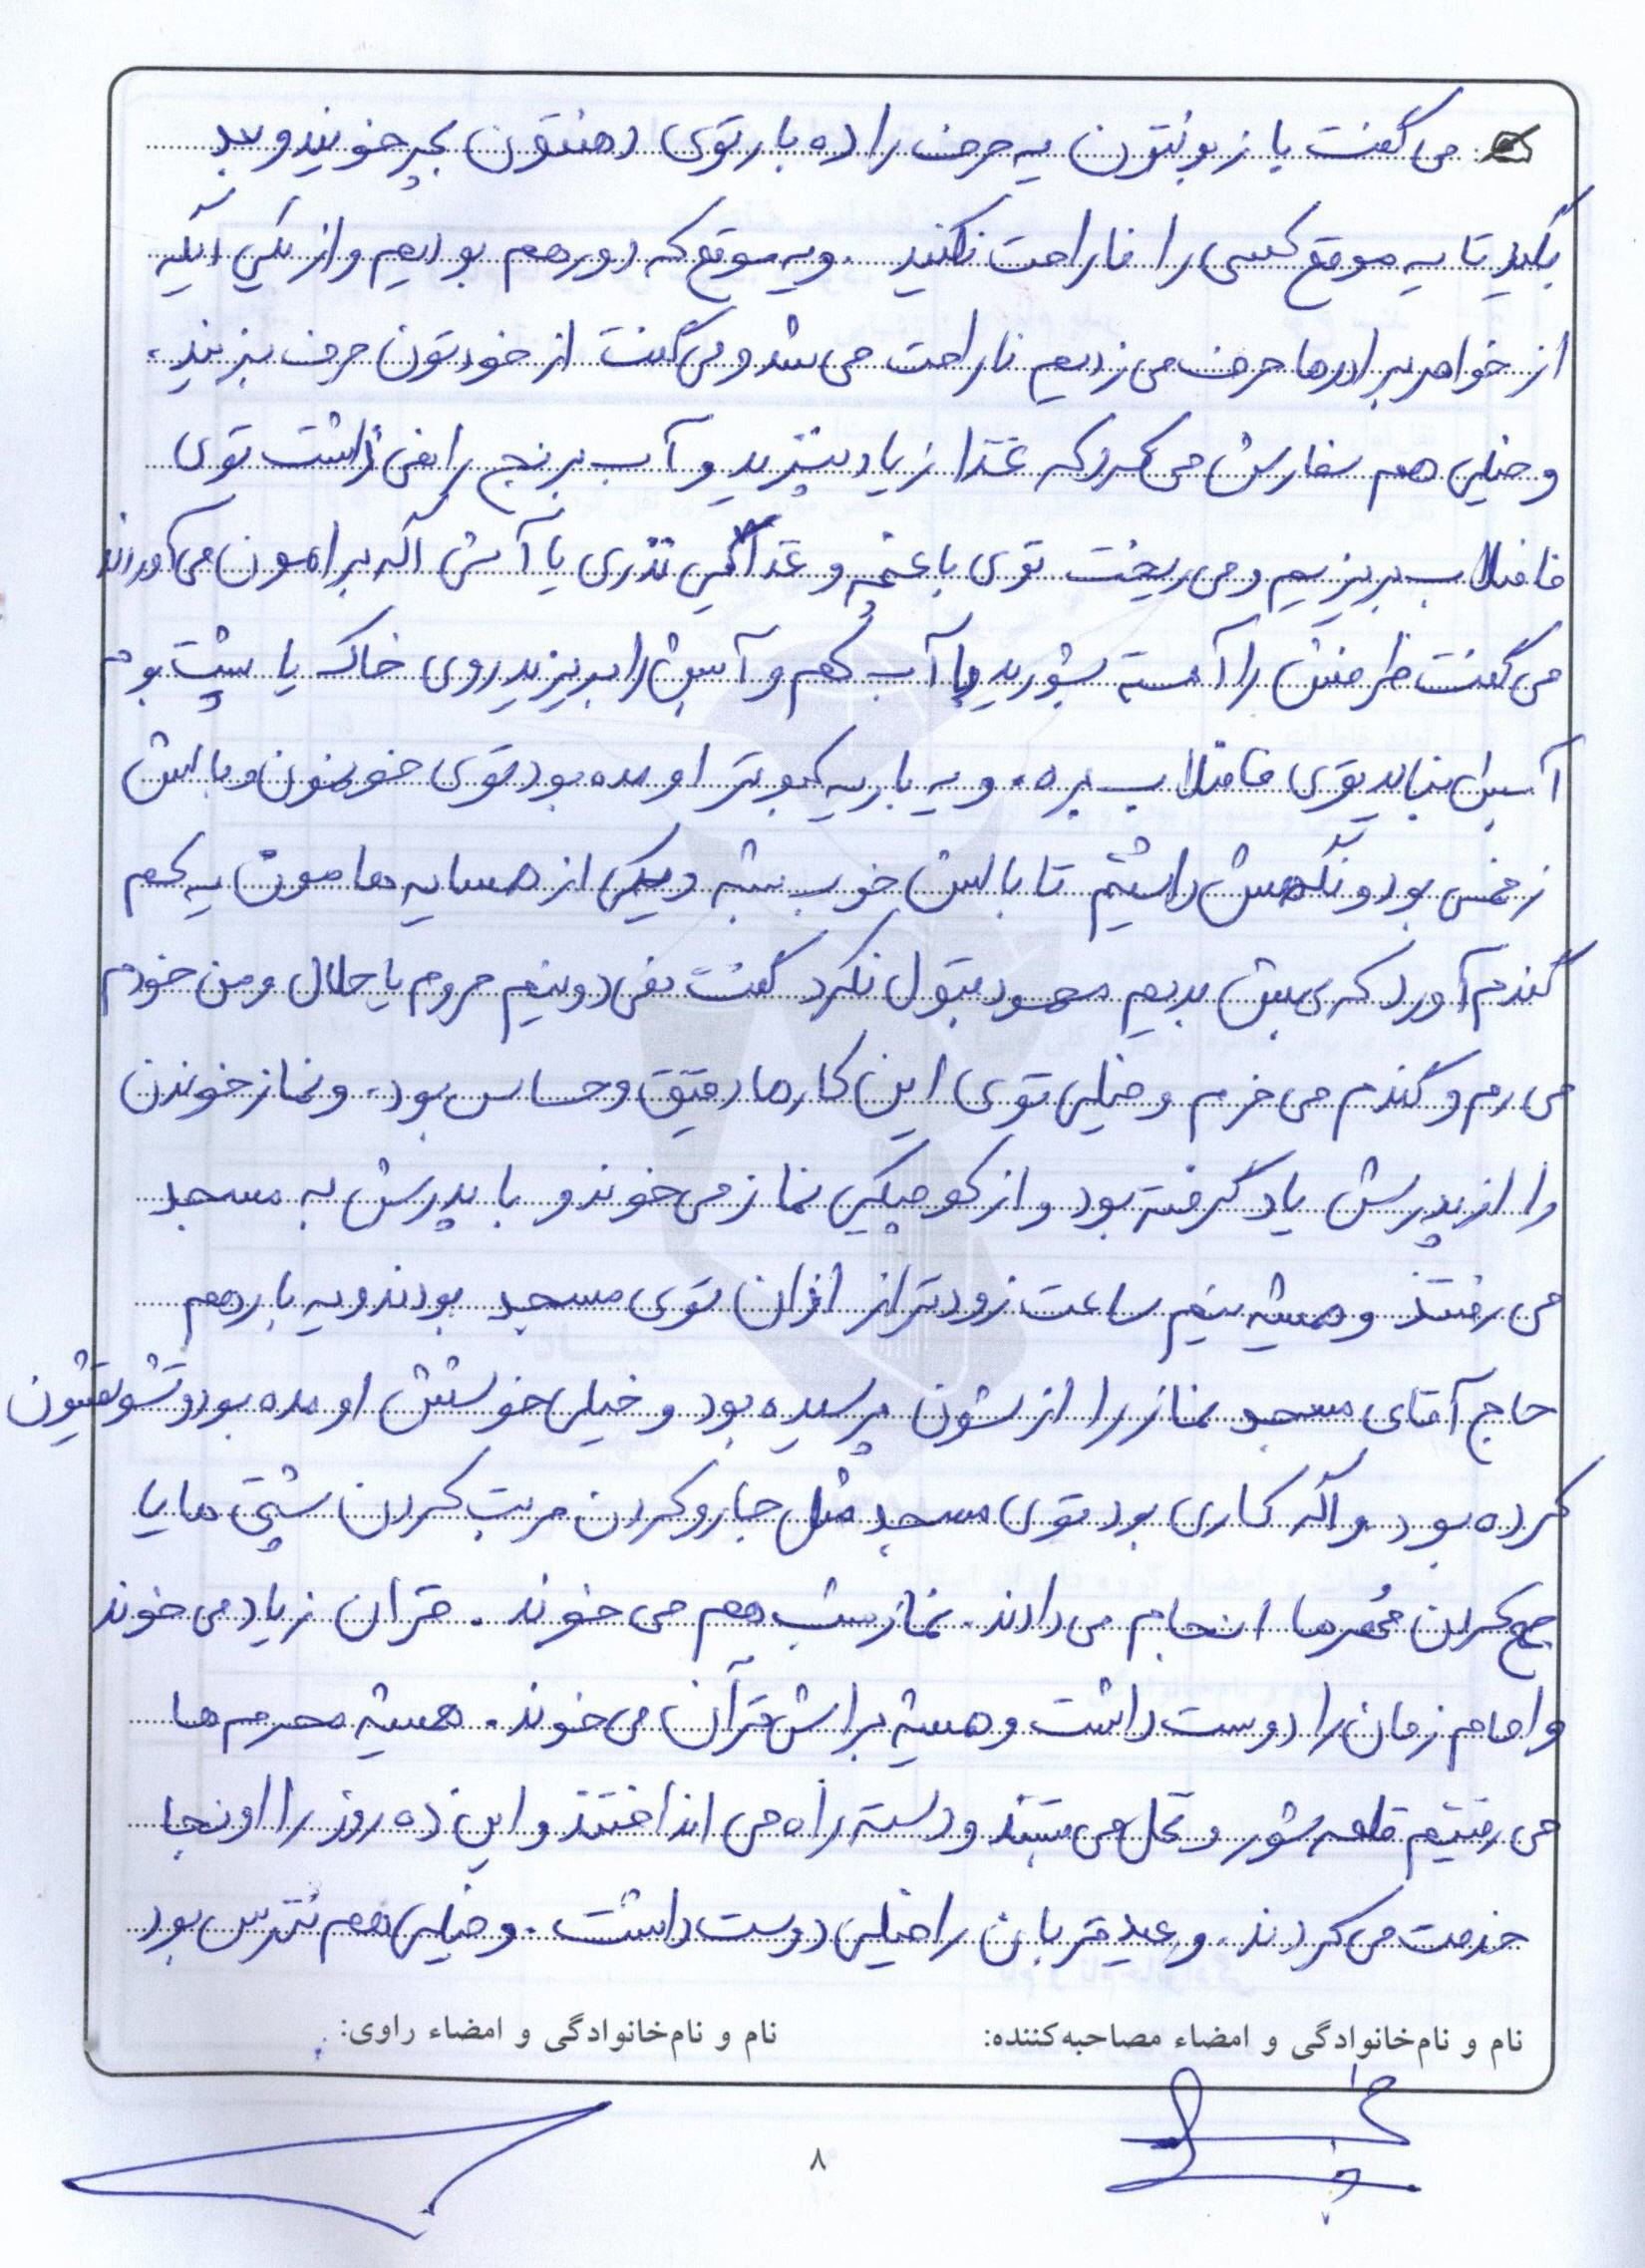 می گفت با زبونتون یه حرف را ده بار توی دهنتون بچرخونید و بعد
بگید تا یه موقع کسی را ناراحت نکنید. و یه موقع که دور هم بودیم و از یکی دیگه
از خواهر برادرها حرف می زدیم ناراحت می شد و می گفت از خودتون حرف بزنید،
و خیلی هم سفارش می کرد که غذا زیاد نپزید و آب برنج را نمی ذاشت توی
فاضلاب بریزیم و می ریخت توی باغچه و غذاگی نذری یا آش اگه برامون می آوردند
می گفت ظرفش را آهسته بشورید با آب کم و آبش را بریزید روی خاک یا پشت بوم
آبش نباید توی فاضلاب بره. و یه بار یه کبوتر اومده بود توی خونمون و بالش
زخمی بود و نگهش داشتیم تا بالش خوب بشه و یکی از همسایه هامون یه کم
گندم آورد که بهش بدیم محمود قبول نکرد گفت نمی دونیم حروم یا حلال و من خودم
می رم و گندم می خرم و خیلی توی این کارها دقیق و حساس بود، و نماز خوندن
را از پدرش یاد گرفته بود و از کوچیکی نماز می خوند و با پدرش به مسجد
می رفتند و همیشه نیم ساعت زودتر از اذان توی مسجد بودند و یه بار هم
حاج آقای مسجد نماز را ازشون پرسیده بود و خیلی خوشش اومده بود و تشویقشون
کرده بود و اگه کاری بود توی مسجد مثل جارو کردن مرتب کردن پشتی ها یا
جمع کردن مُهرها انجام می دادند. نماز شب هم می خوند. قران زیاد می خوند
و امام زمان را دوست داشت و همیشه براش قرآن می خوند. همیشه محرم ها
می رفتیم قلعه شور و نخل می بستند و دسته راه می انداختند و این ده روز را اونجا
خدمت می کردند. و عید قربان را خیلی دوست داشت. و خیلی هم نترس بود
نام و نام‌خانوادگی و امضاء مصاحبه‌کننده:
نام و نام‌خانوادگی و امضاء راوی:
۸